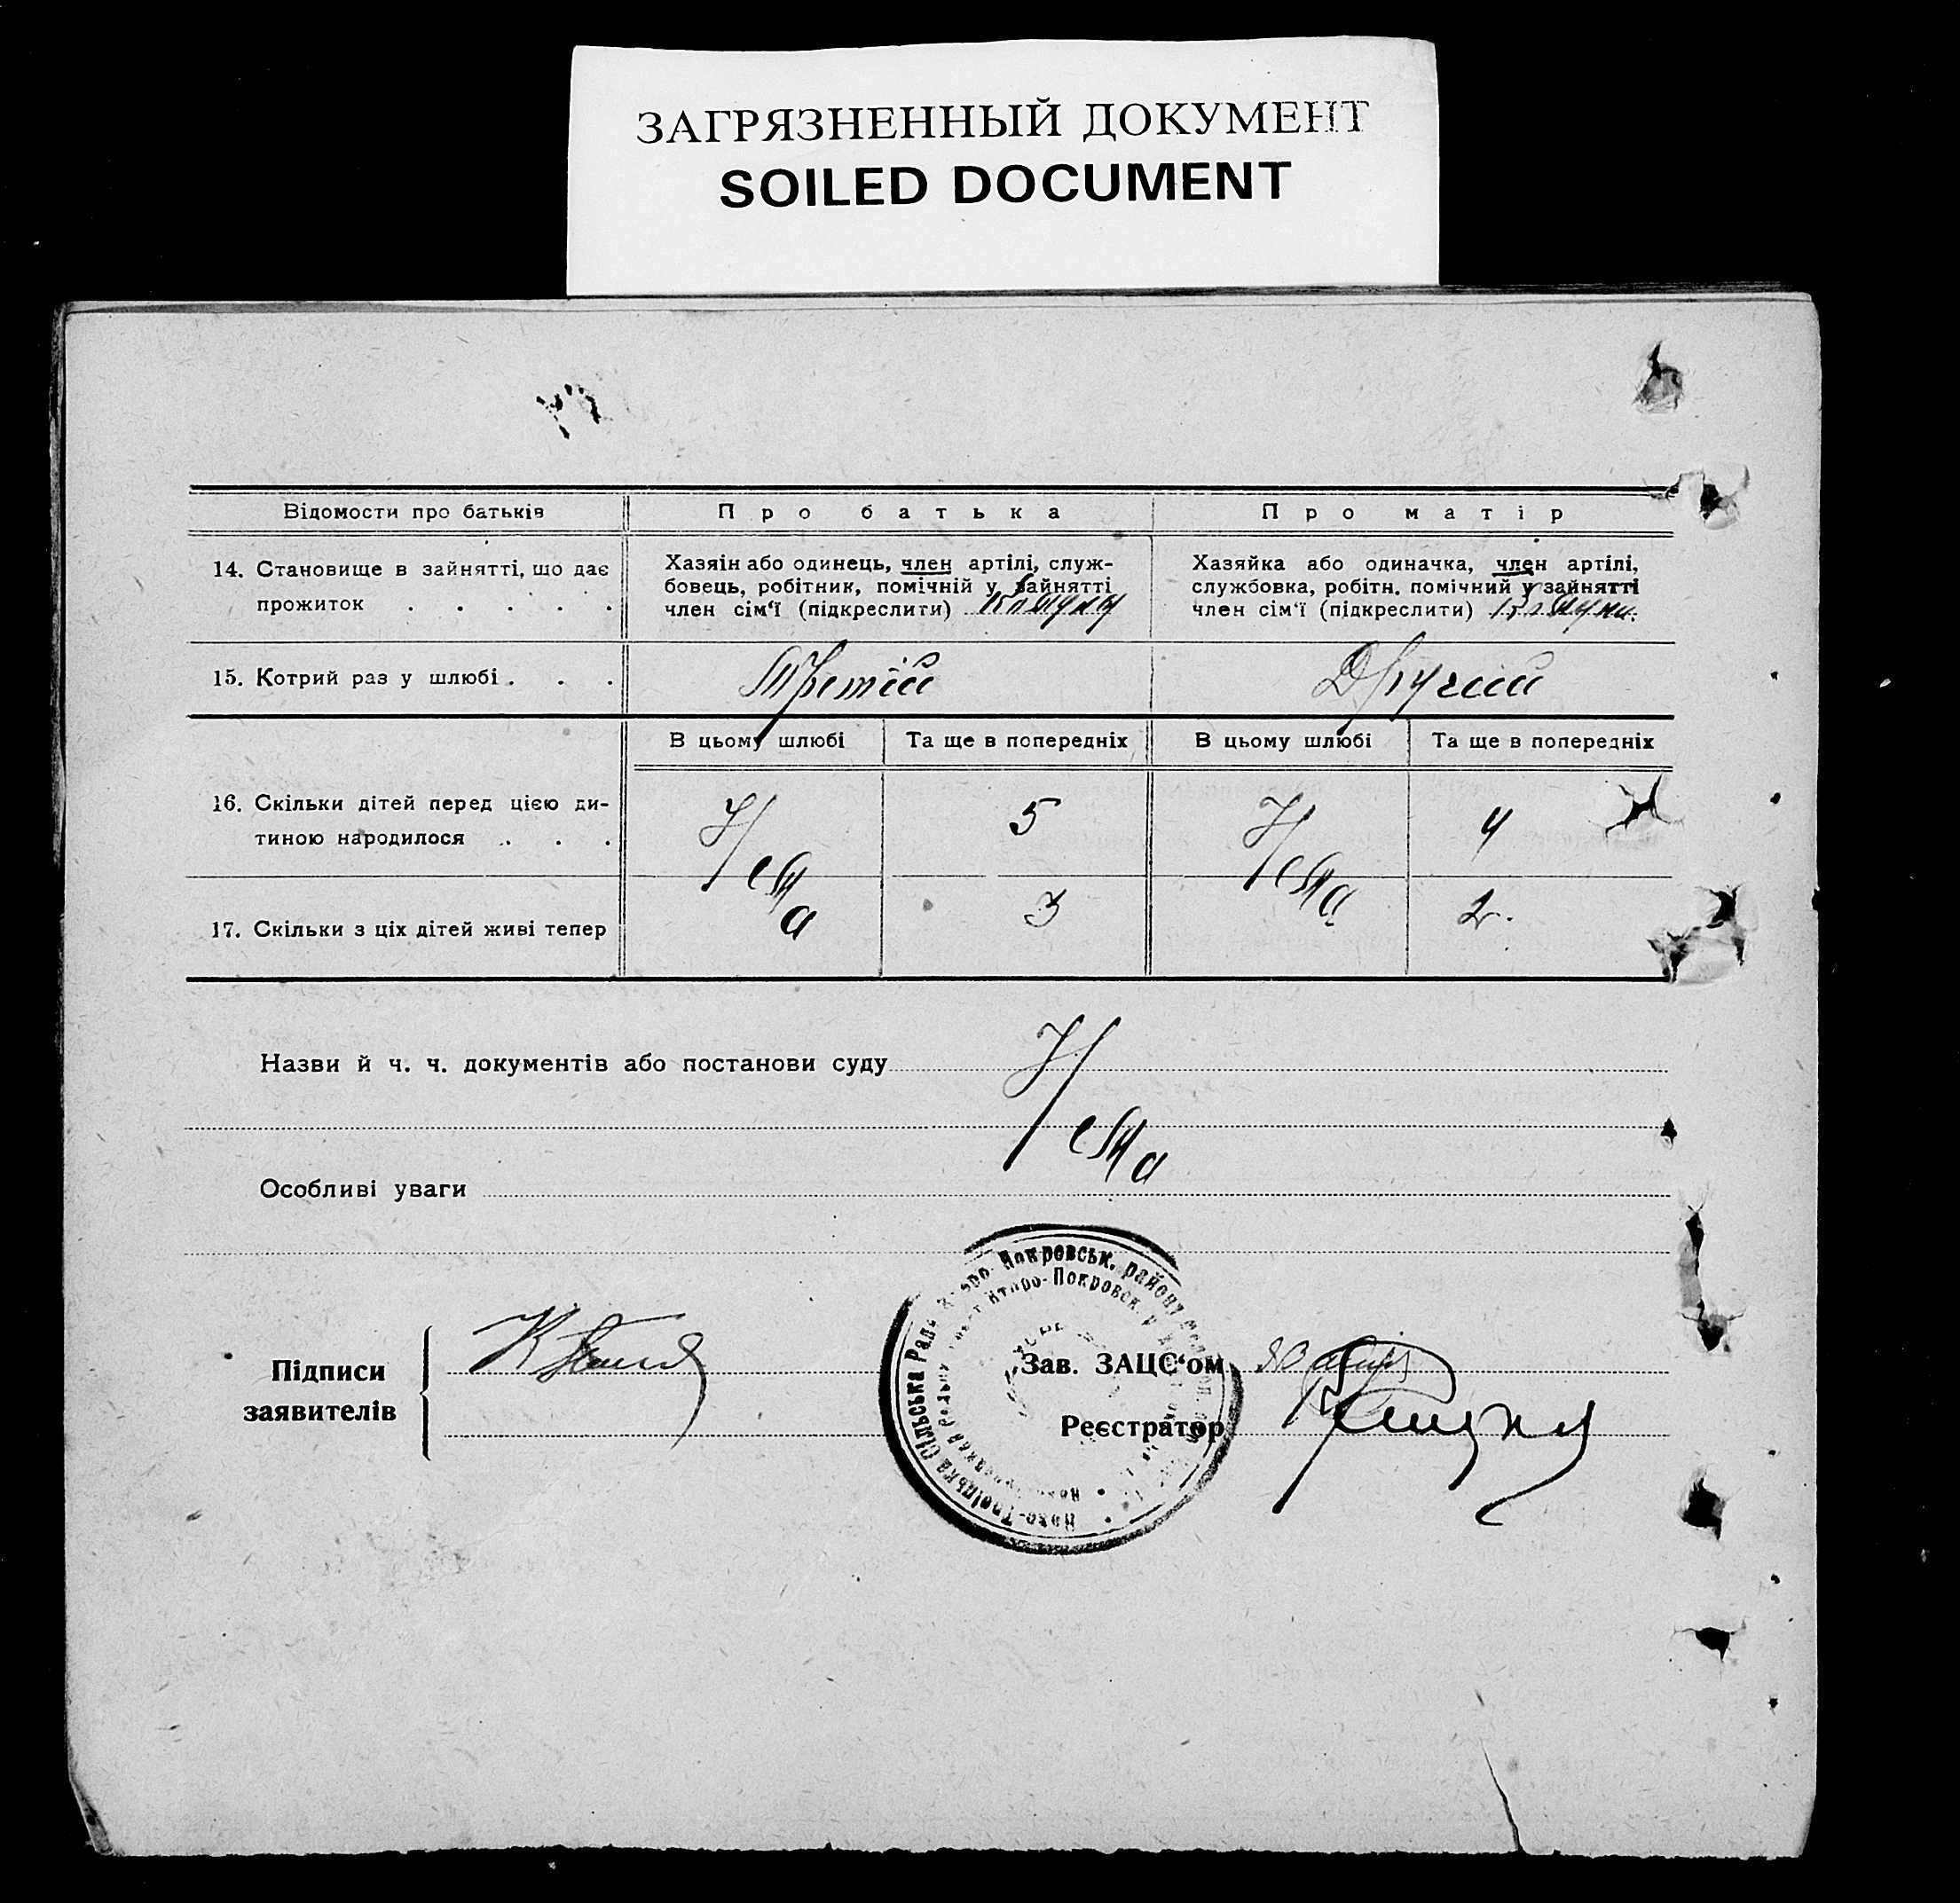 ЗАГРЯЗНЕННЫЙ ДОКУМЕНТ
SOILED DOCUMENT
Відомости про батьків
Про батька
Про матір
14. Становище в зайнятті, що дає
прожиток . . . . .
Хазяін або одинець, член артілі, служ-
бовець, робітник, помічній у зайнятті
член сім'ї (підкреслити)
Хазяйка або одиначка, член артілі,
службовка, робітн. помічний у зайнятті
член сім'ї (підкреслити)
15. Котрий раз у шлюбі . . .
Третій
Другий
В цьому шлюбі
Та ще в попередніх
В цьому шлюбі
Та ще в попередніх
16. Скільки дітей перед цією ди-
тиною народилося . . .
Нема
5
Нема
4
17. Скільки з ціх дітей живі тепер
3
2.
Назви й ч. ч. документів або постанови суду
Нема
Особливі уваги
Підписи
заявителів
Зав. ЗАЦС'ом
Реєстратор
Сільська Рада Покровськ. району
Покровск.